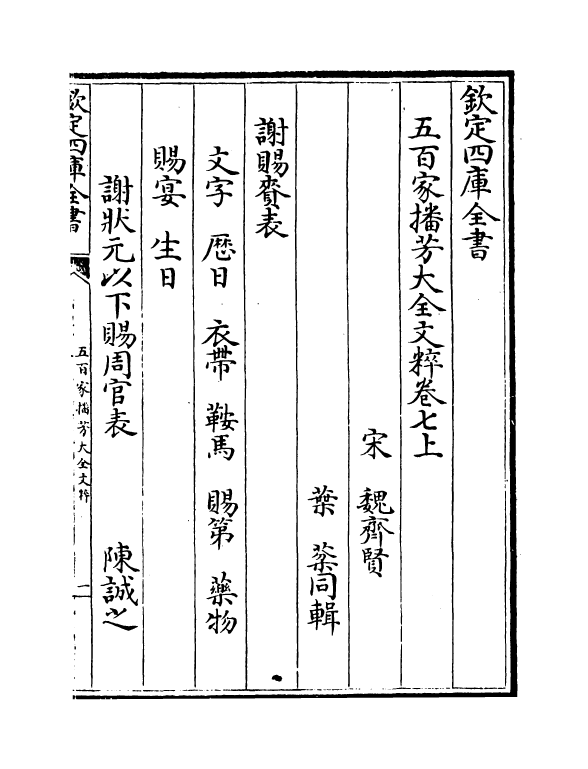 欽定四庫全書
五百家播芳大全文粹卷七上
宋 魏齊賢
葉棻同輯
謝賜賚表
文字 厯日 衣帶 鞍馬 賜第 藥物
賜宴 生日
謝狀元以下賜周官表 陳誠之
欽定四庫全書
五百家播芳大全文粹
一